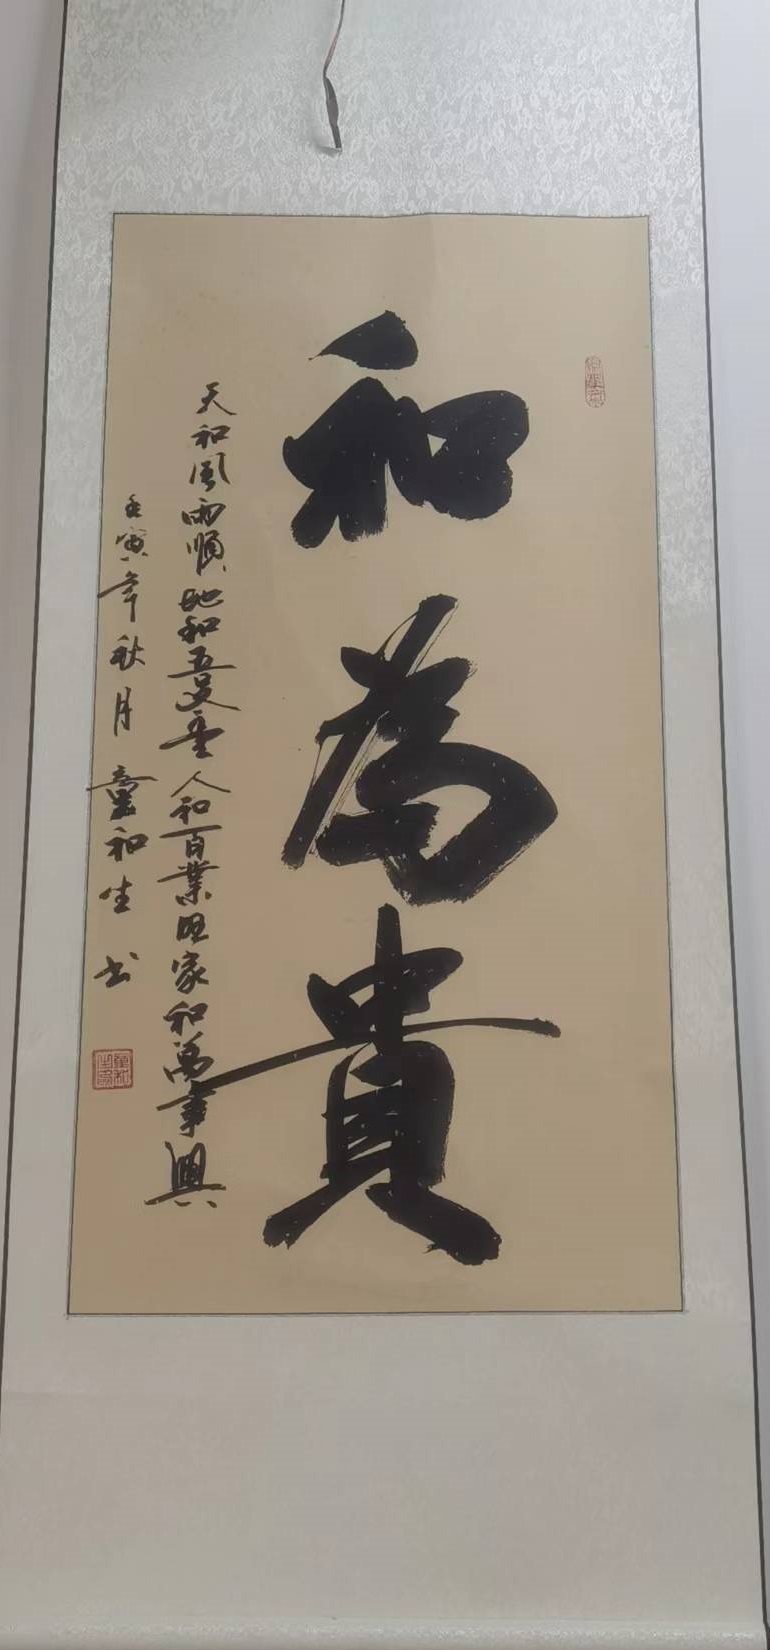 和為貴
天和風雨順地和五谷豐人和百業旺家和萬事興
壬寅年秋月童和生书